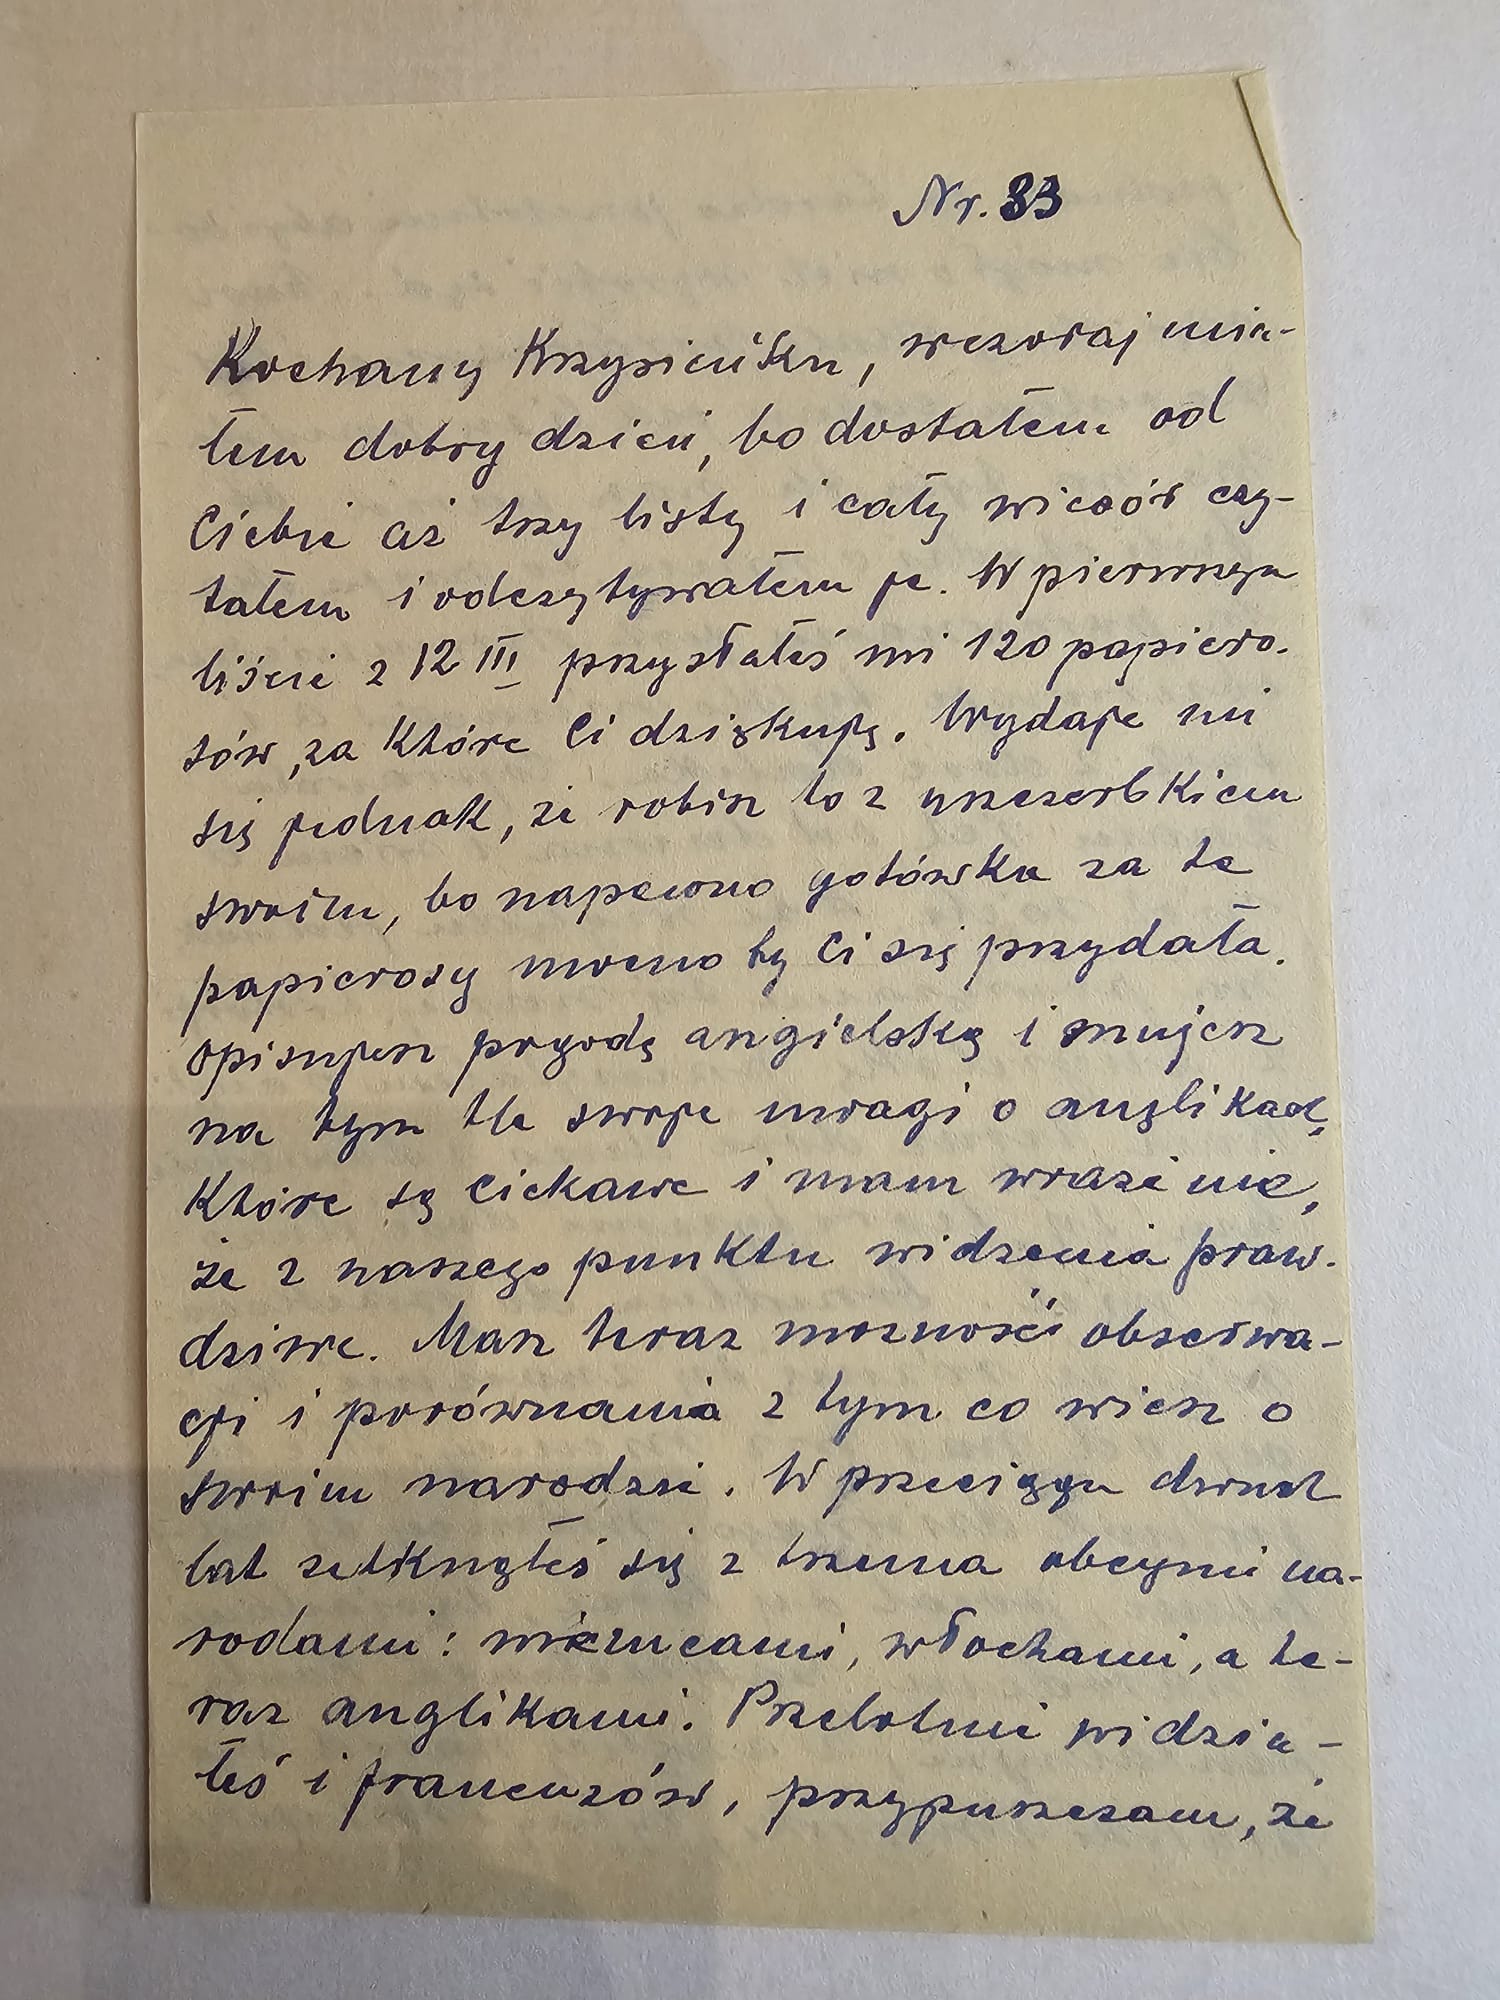 Nr. 33
Kochany Krzysieńku, wczoraj mia-
łem dobry dzień, bo dostałem od
Ciebie aż trzy listy i cały wieczór czy-
tałem i odczytywałem je. W pierwszym
liście z 12 III przysłałeś mi 120 papiero-
sów, za które Ci dziękuję. Wydaje mi
się jednak, że robisz to z uszczerbkiem
swoim, bo napewno gotówka za te
papierosy mocno by Ci się przydała.
Opisujesz przygodę angielską i snujesz
na tym tle swoje uwagi o anglikach,
które są ciekawe i mam wrażenie,
że z naszego punktu widzenia praw-
dziwe. Masz teraz możność obserwa-
cji i porównania z tym co wiesz o
swoim narodzie. W przeciągu dwuch
lat zetknąłeś się z trzema obcymi na-
rodami: niemcami, włochami, a te-
raz anglikami. Przelotnie widzia-
łeś i francuzów, przypuszczam, że